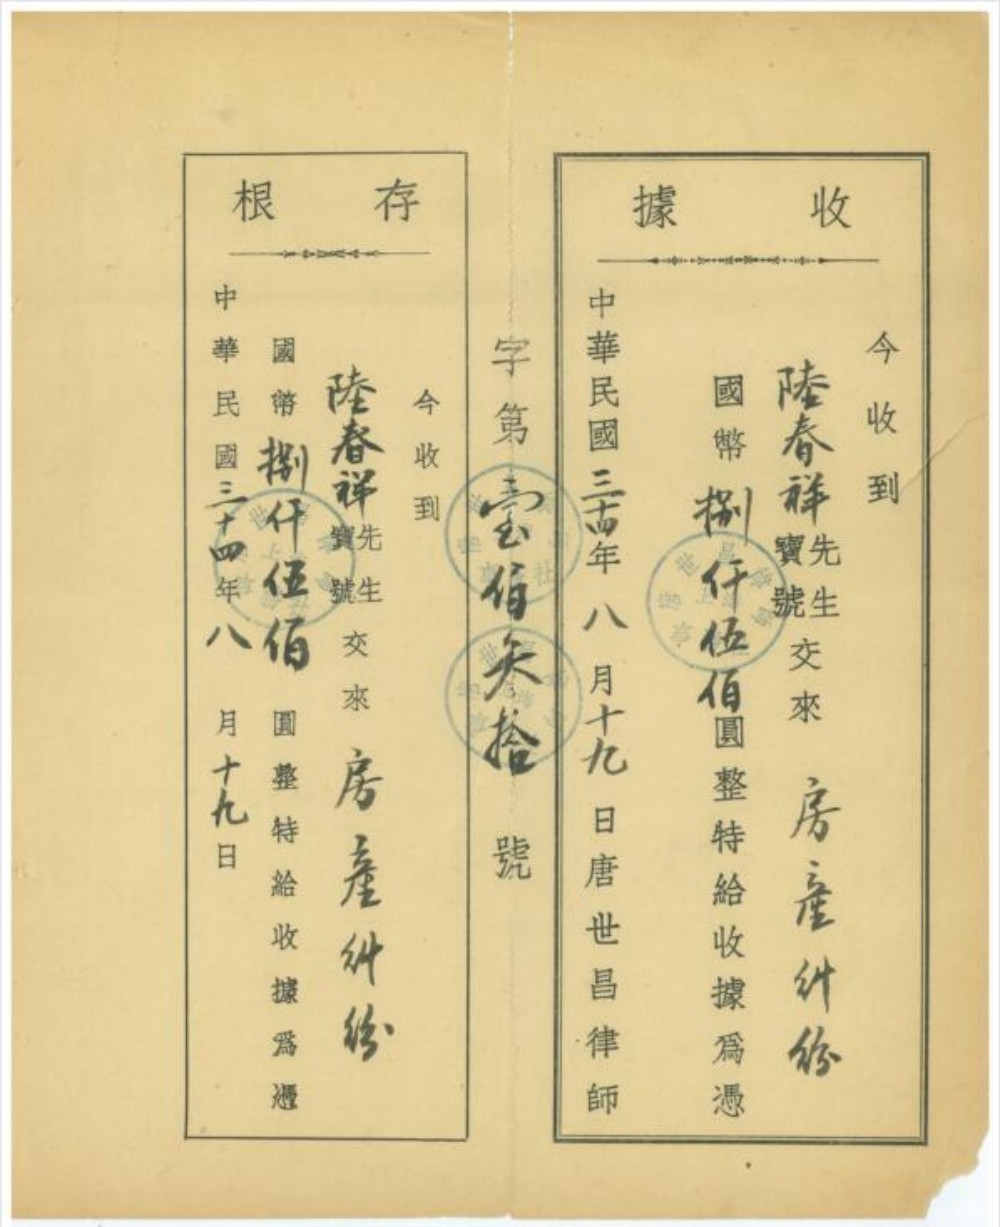 收據
今收到
陸春祥先生寶號交來 房產糾紛
國幣捌仟伍佰圓整特給收據爲憑
中華民國三十四年八月十九日唐世昌律師
字第壹佰矣拾號
存根
今收到
陸春祥先生寶號交來 房產糾紛
國幣捌仟伍佰圓整特給收據爲憑
中華民國三十四年八月十九日